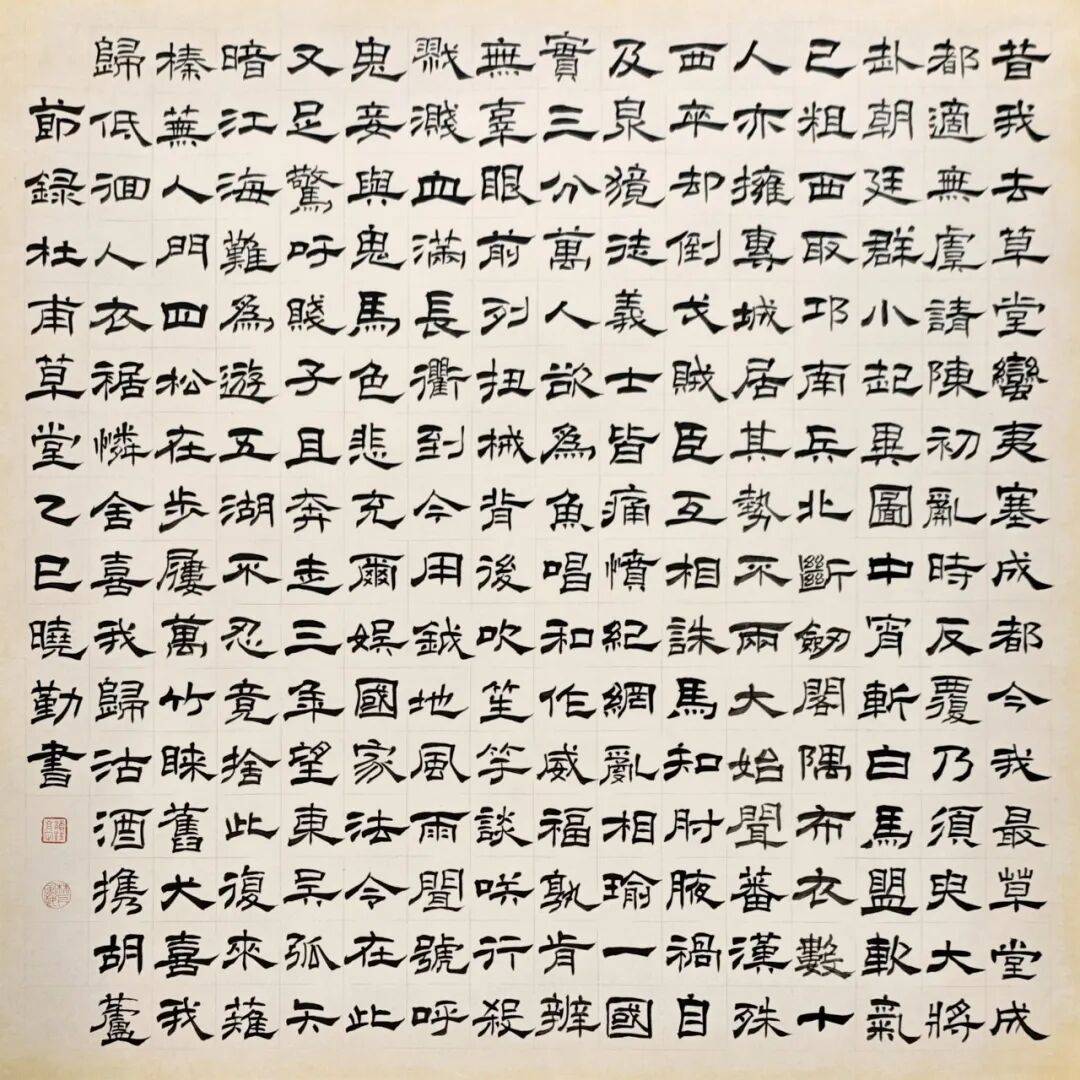 昔我去草堂蠻夷塞成都今我最草堂成
都適無虞請陳初亂時反覆乃須臾大將
赴朝廷群小起異圖中宵斬白馬盟軟氣
已粗西取邛南兵北斷劒閣隅布衣數十
人亦擁專城居其勢不兩大始聞蕃漢殊
西卒却倒戈賊臣互相誅馬知肘腋禍自
及泉獍徒義士皆痛憤紀網亂相瑜一國
實三分萬人欲為魚唱和作威福孰肯辨
無辜眼前列扭械背後吹笙竽談咲行殺
戮濺血滿長衢到今用鉞地風雨聞號呼
鬼妾與鬼馬色悲充爾娛國家法令在此
又足驚吁賤子且奔走三年望東吳弧矢
暗江海難為遊五湖不忍竟捨此復來薙
榛蕪人門四松在步屨萬竹睞舊犬喜我
歸低徊人衣裾憐舍喜我歸沽酒携胡蘆
節録杜甫草堂乙巳曉勤書